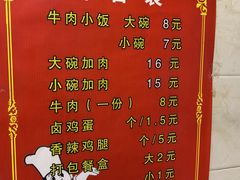 牛肉小饭 大碗 8元
小碗 7元
大碗加肉 16元
小碗加肉 15元
牛肉(一份) 8元
卤鸡蛋 个/1.5元
香辣鸡腿 个/5元
打包餐盒 大2元
小1元